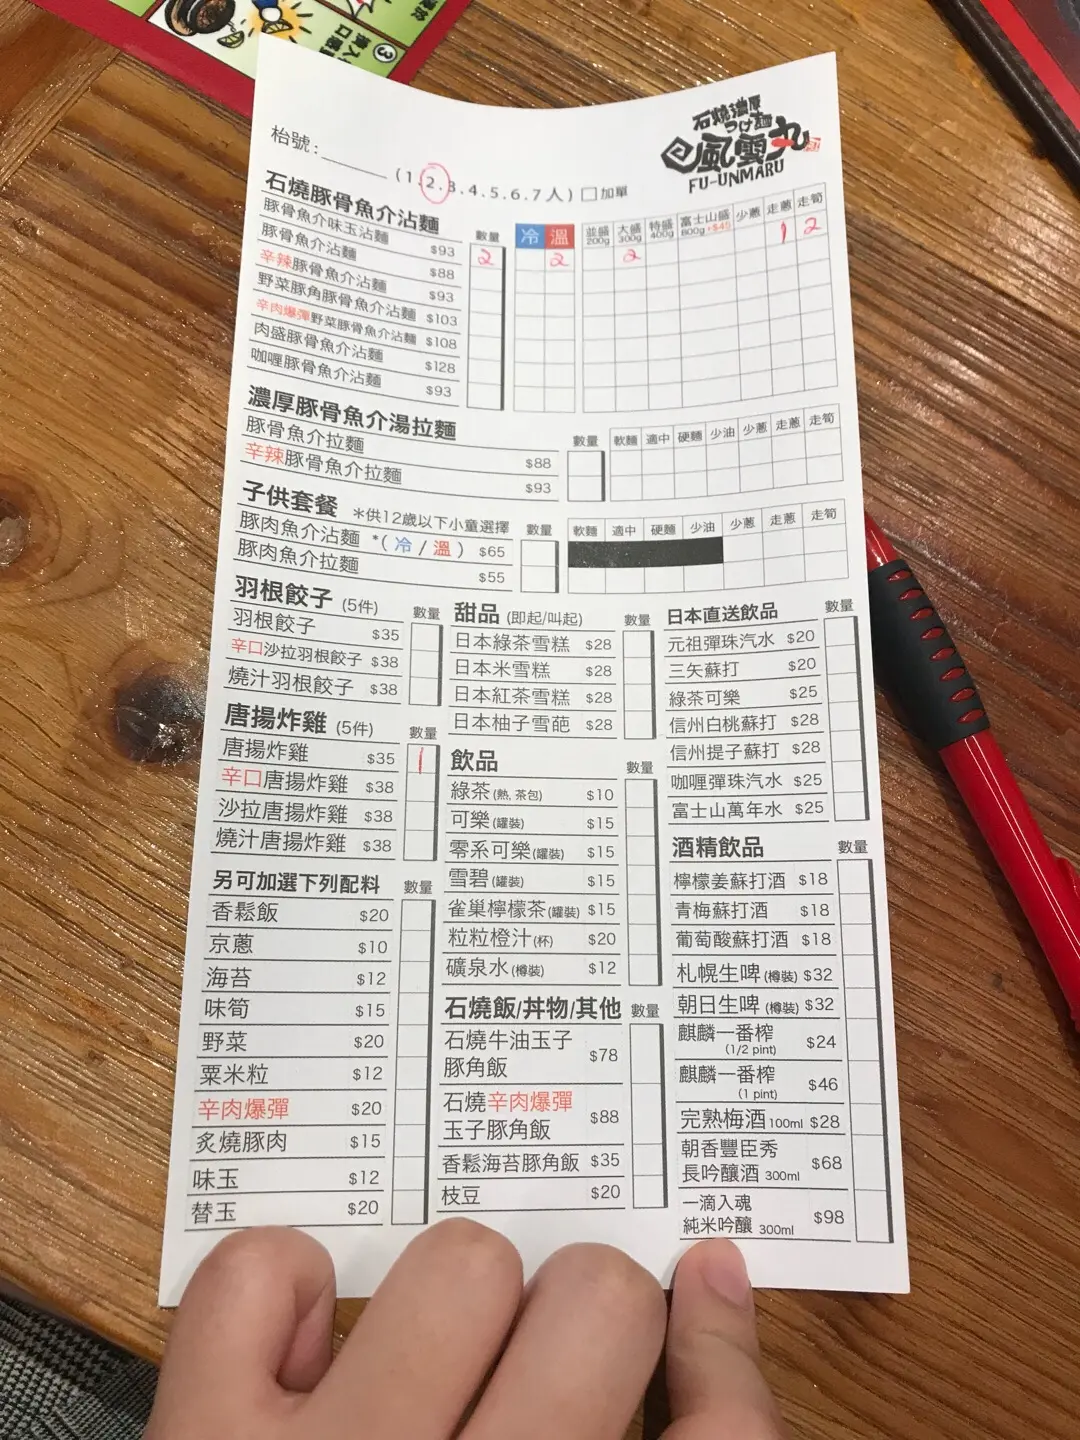 ③
石燒濃厚
つけ麺
風雲丸
FU-UNMARU
枱號: ______ (1.2.3.4.5.6.7人) □加單
石燒豚骨魚介沾麵 數量 冷 溫 並盛200g 大盛300g 特盛400g 富士山盛800g+$45 少蔥 走蔥 走筍
豚骨魚介味玉沾麵 $93 2 2 2 1 2
豚骨魚介沾麵 $88
辛辣豚骨魚介沾麵 $93
野菜豚角豚骨魚介沾麵 $103
辛肉爆彈野菜豚骨魚介沾麵 $108
肉盛豚骨魚介沾麵 $128
咖喱豚骨魚介沾麵 $93
濃厚豚骨魚介湯拉麵 數量 軟麵 適中 硬麵 少油 少蔥 走蔥 走筍
豚骨魚介拉麵 $88
辛辣豚骨魚介拉麵 $93
子供套餐 *供12歲以下小童選擇 數量 軟麵 適中 硬麵 少油 少蔥 走蔥 走筍
豚肉魚介沾麵 *(冷/溫) $65
豚肉魚介拉麵 $55
羽根餃子 (5件) 數量
羽根餃子 $35
辛口沙拉羽根餃子 $38
燒汁羽根餃子 $38
唐揚炸雞 (5件) 數量
唐揚炸雞 $35 1
辛口唐揚炸雞 $38
沙拉唐揚炸雞 $38
燒汁唐揚炸雞 $38
另可加選下列配料 數量
香鬆飯 $20
京蔥 $10
海苔 $12
味筍 $15
野菜 $20
粟米粒 $12
辛肉爆彈 $20
炙燒豚肉 $15
味玉 $12
替玉 $20
甜品 (即起/叫起) 數量
日本綠茶雪糕 $28
日本米雪糕 $28
日本紅茶雪糕 $28
日本柚子雪葩 $28
飲品 數量
綠茶(熱, 茶包) $10
可樂(罐裝) $15
零系可樂(罐裝) $15
雪碧(罐裝) $15
雀巢檸檬茶(罐裝) $15
粒粒橙汁(杯) $20
礦泉水(樽裝) $12
石燒飯/丼物/其他 數量
石燒牛油玉子
豚角飯 $78
石燒辛肉爆彈
玉子豚角飯 $88
香鬆海苔豚角飯 $35
枝豆 $20
日本直送飲品 數量
元祖彈珠汽水 $20
三矢蘇打 $20
綠茶可樂 $25
信州白桃蘇打 $28
信州提子蘇打 $28
咖喱彈珠汽水 $25
富士山萬年水 $25
酒精飲品 數量
檸檬姜蘇打酒 $18
青梅蘇打酒 $18
葡萄酸蘇打酒 $18
札幌生啤(樽裝) $32
朝日生啤(樽裝) $32
麒麟一番榨
(1/2 pint) $24
麒麟一番榨
(1 pint) $46
完熟梅酒100ml $28
朝香豐臣秀
長吟釀酒 300ml $68
一滴入魂
純米吟釀 300ml $98